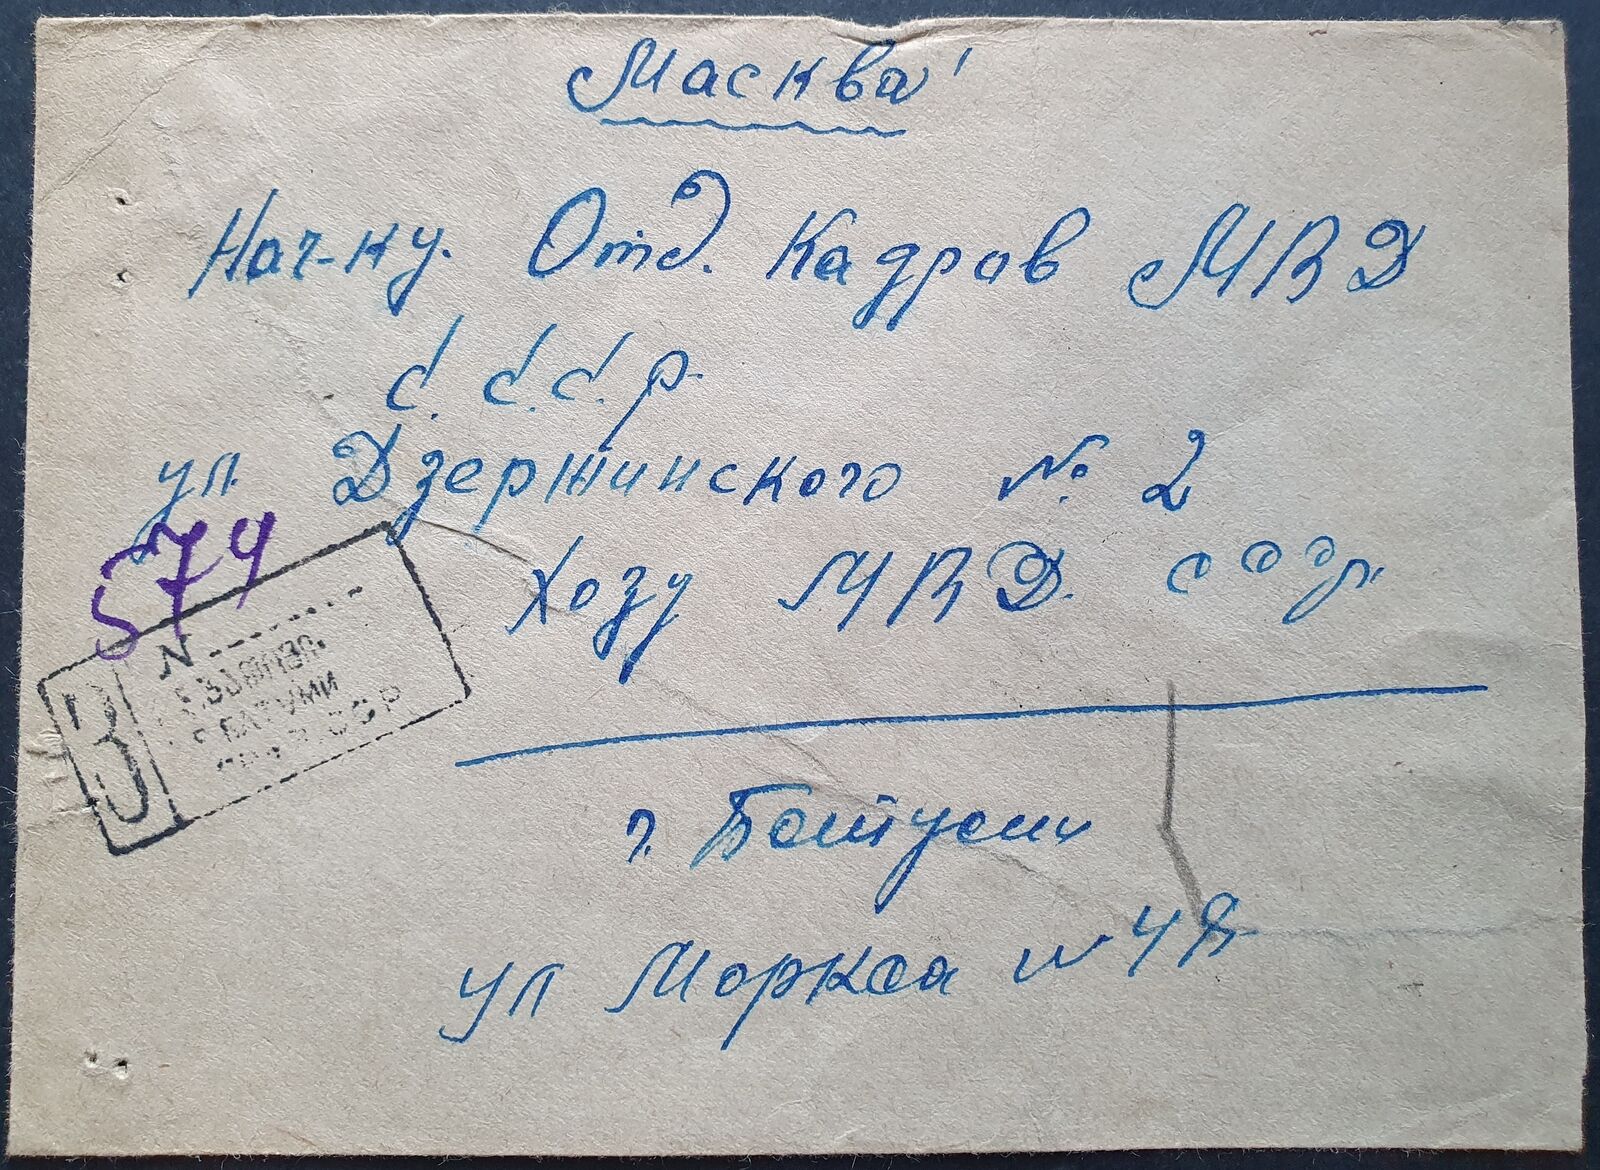 Масква!
Нач-ку. Отд. Кадров МВД
С. С. С. р.
ул. Дзержинского № 2
Хозу МВД. ССС р.
574
З
N
БАТУМИ
ССР
г. Батуми
ул Маркса N 48